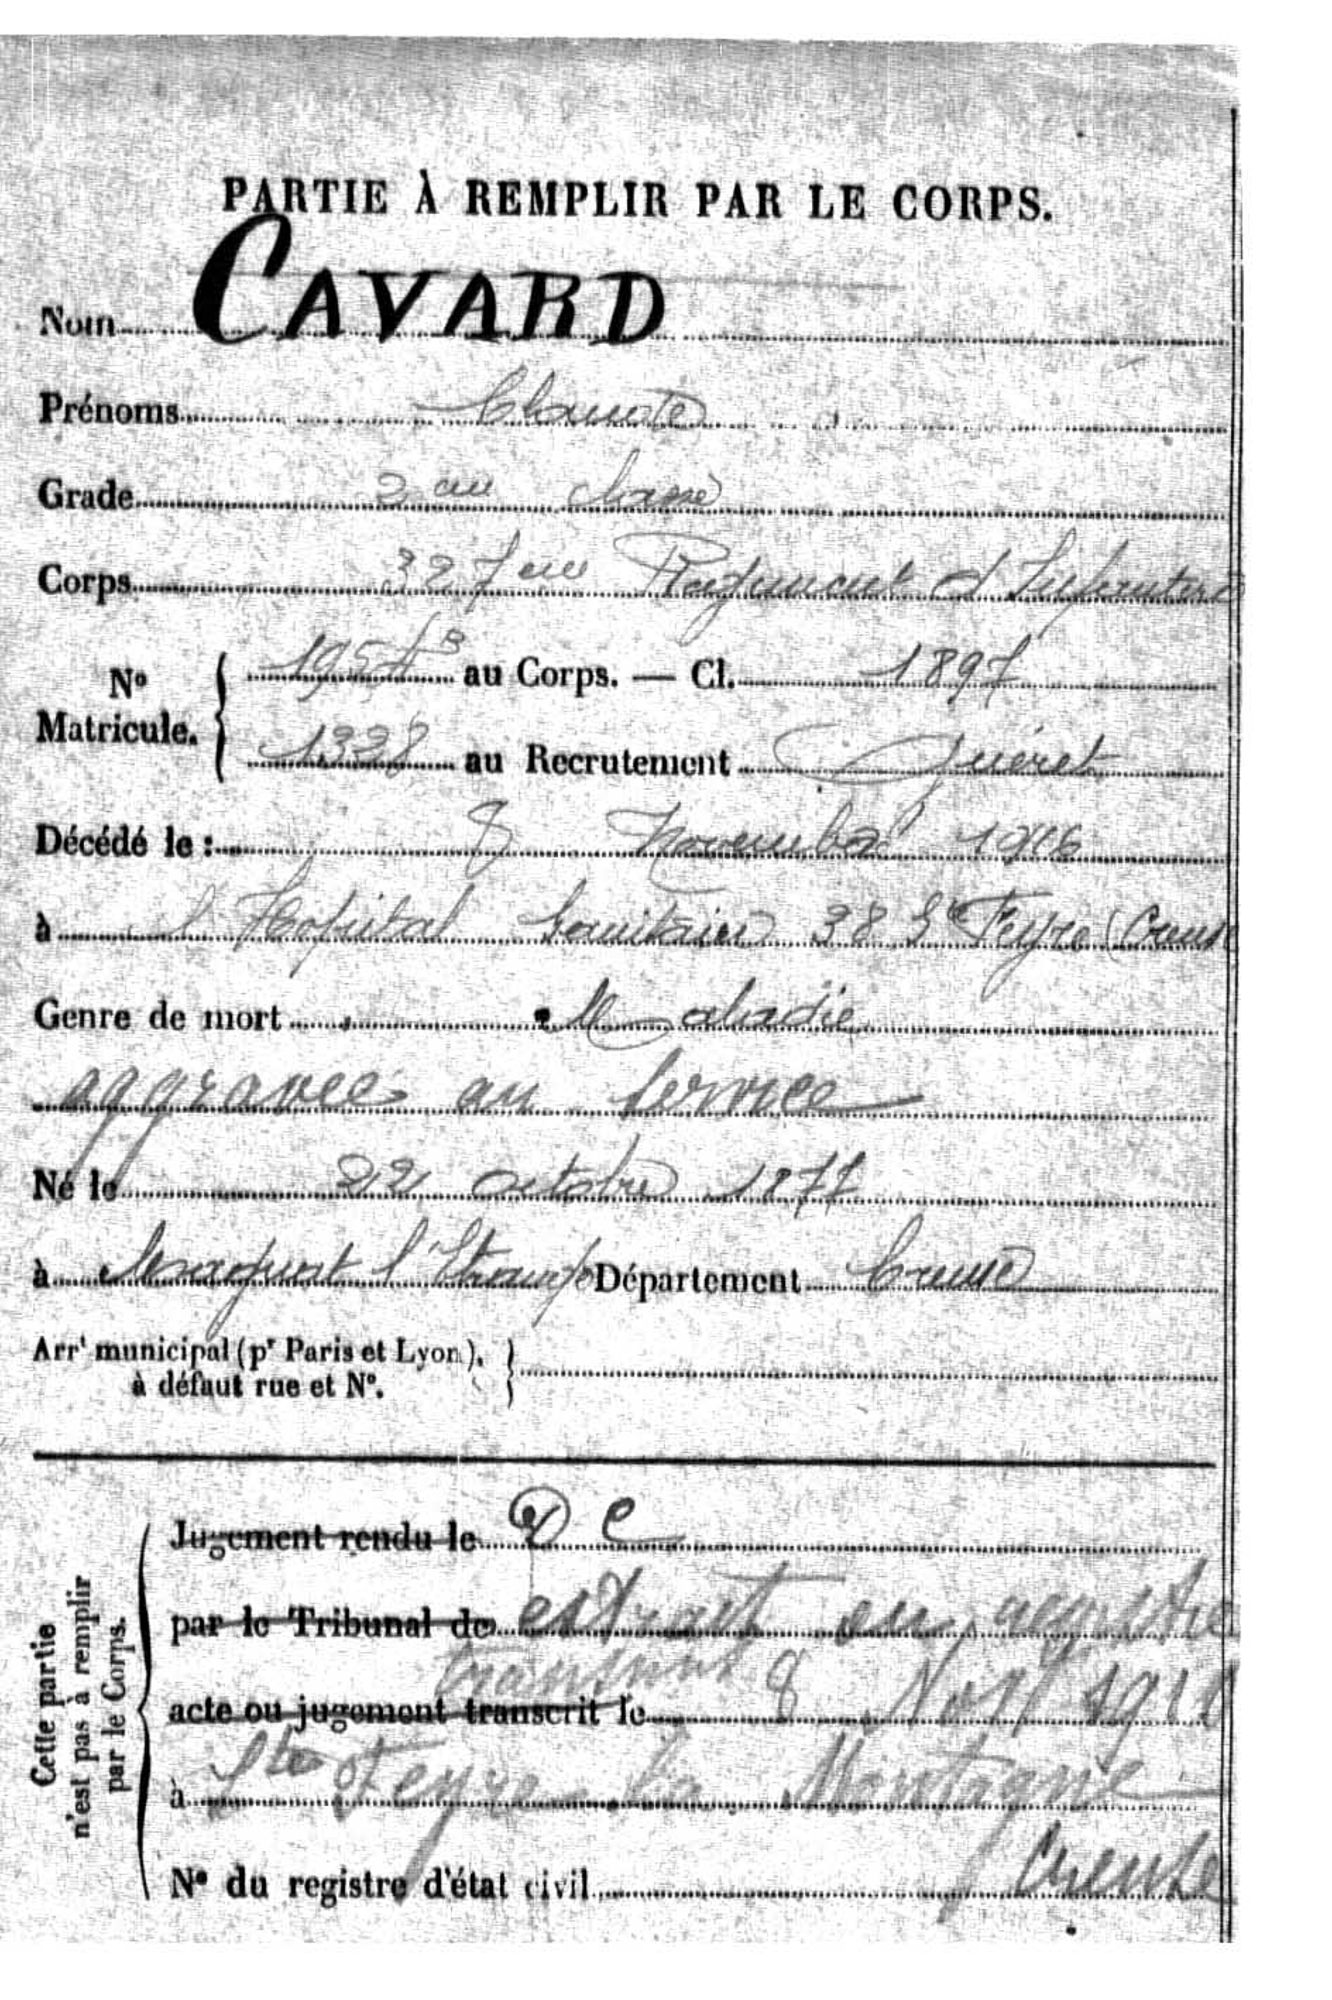 PARTIE À REMPLIR PAR LE CORPS.
Nom CAVARD
Prénoms
Grade 2 eme classe
Corps 327 eme Regiment d Infanterie
N° Matricule. 1954 au Corps. — Cl. 1897
1328 au Recrutement Guéret
Décédé le : 8 Novembre 1916
à l Hopital Sanitaire 38 Ste Feyre (Creuse
Genre de mort Maladie
aggravée au service
Né le 22 octobre 1877
à Département Creuse
Arrt municipal (pr Paris et Lyon),
à défaut rue et N°.
Cette partie
n'est pas à remplir
par le Corps.
Jugement rendu le D C
par le Tribunal de extrait en registre
transmis
acte ou jugement transcrit le 8 Nov
à Ste Feyre la Montagne
Creuse
N° du registre d'état civil